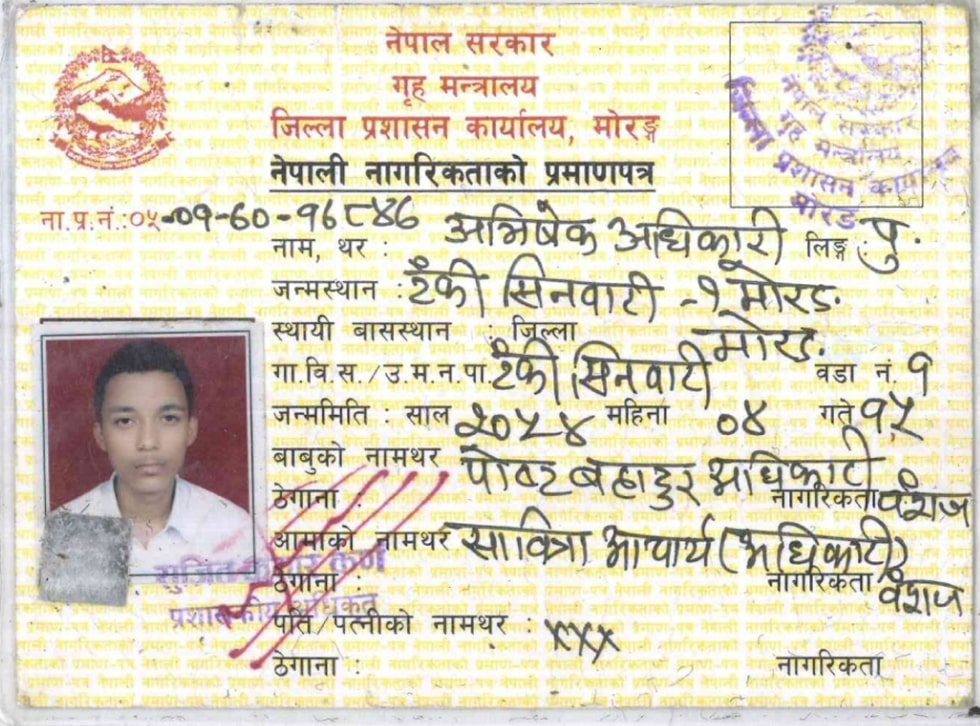 नेपाल सरकार
गृह मन्त्रालय
जिल्ला प्रशासन कार्यालय, मोरङ्ग
नेपाली नागरिकताको प्रमाणपत्र
नेपाल सरकार
गृह मन्त्रालय
जिल्ला प्रशासन कार्यालय
मोरङ
ना.प्र.नं.:०५-०१-६०-१६८४६
नाम, थर : अभिषेक अधिकारी लिङ्ग : पु.
जन्मस्थान : टंकी सिनवारी -१ मोरङ.
स्थायी बासस्थान : जिल्ला मोरङ.
गा.वि.स./उ.म.न.पा. टंकी सिनवारी वडा नं. १
जन्ममिति : साल २०५४ महिना ०४ गते १५
बाबुको नामथर बहादुर अधिकारी
ठेगाना : नागरिकता वंशज
आमाको नामथर सावित्रा आचार्य (अधिकारी)
ठेगाना : नागरिकता वंशज
प्रशासकीय अधिकृत
पति/पत्नीको नामथर : xxx
ठेगाना : नागरिकता